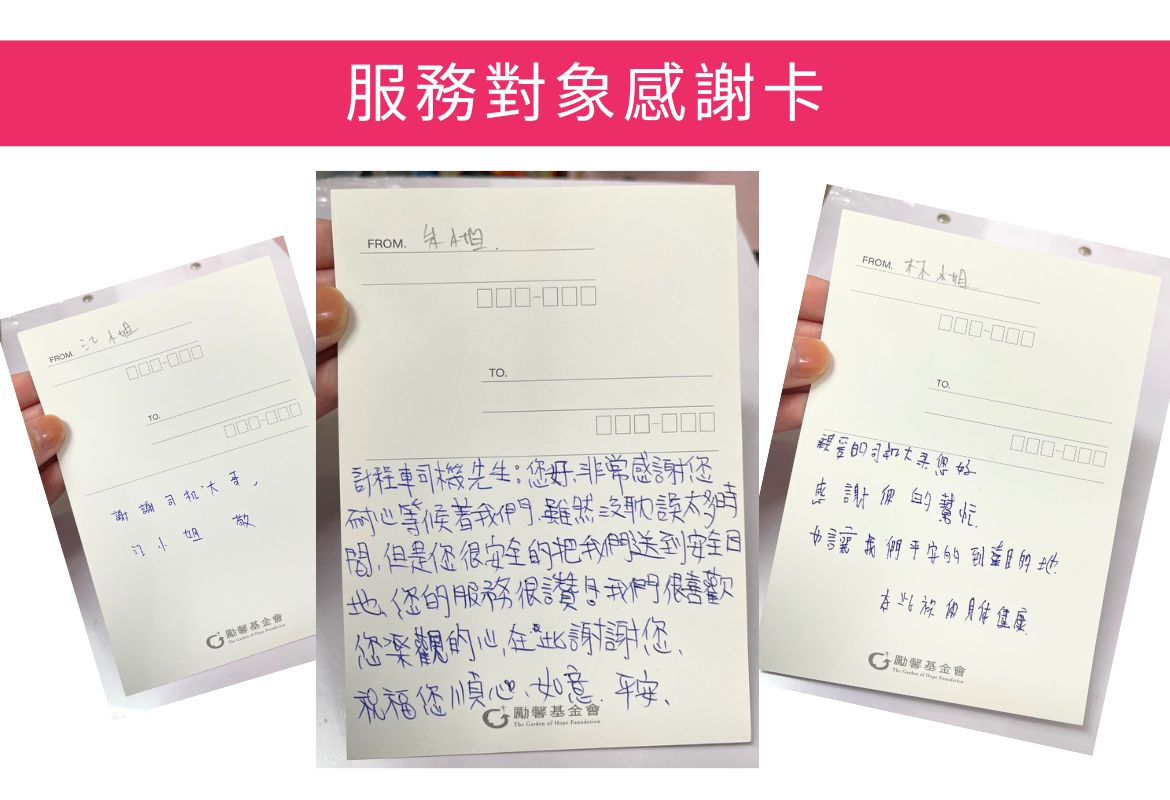 服務對象感謝卡
FROM. 江小姐
TO.
謝謝司机大哥,
江小姐 敬
勵馨基金會
The Garden of Hope Foundation
FROM. 朱小姐.
TO.
計程車司機先生:您好,非常感謝您
耐心等候著我們.雖然沒耽誤太多時
間,但是您很安全的把我們送到安全目
地、您的服務很讚!我們很喜歡
您樂觀的心,在此謝謝您、
祝福您順心、如意. 平安、
勵馨基金會
The Garden of Hope Foundation
FROM. 林小姐
TO.
親愛的司机大哥您好.
感謝你的幫忙.
也讓我們平安的到達目的地.
在此祝你身体健康.
勵馨基金會
The Garden of Hope Foundation